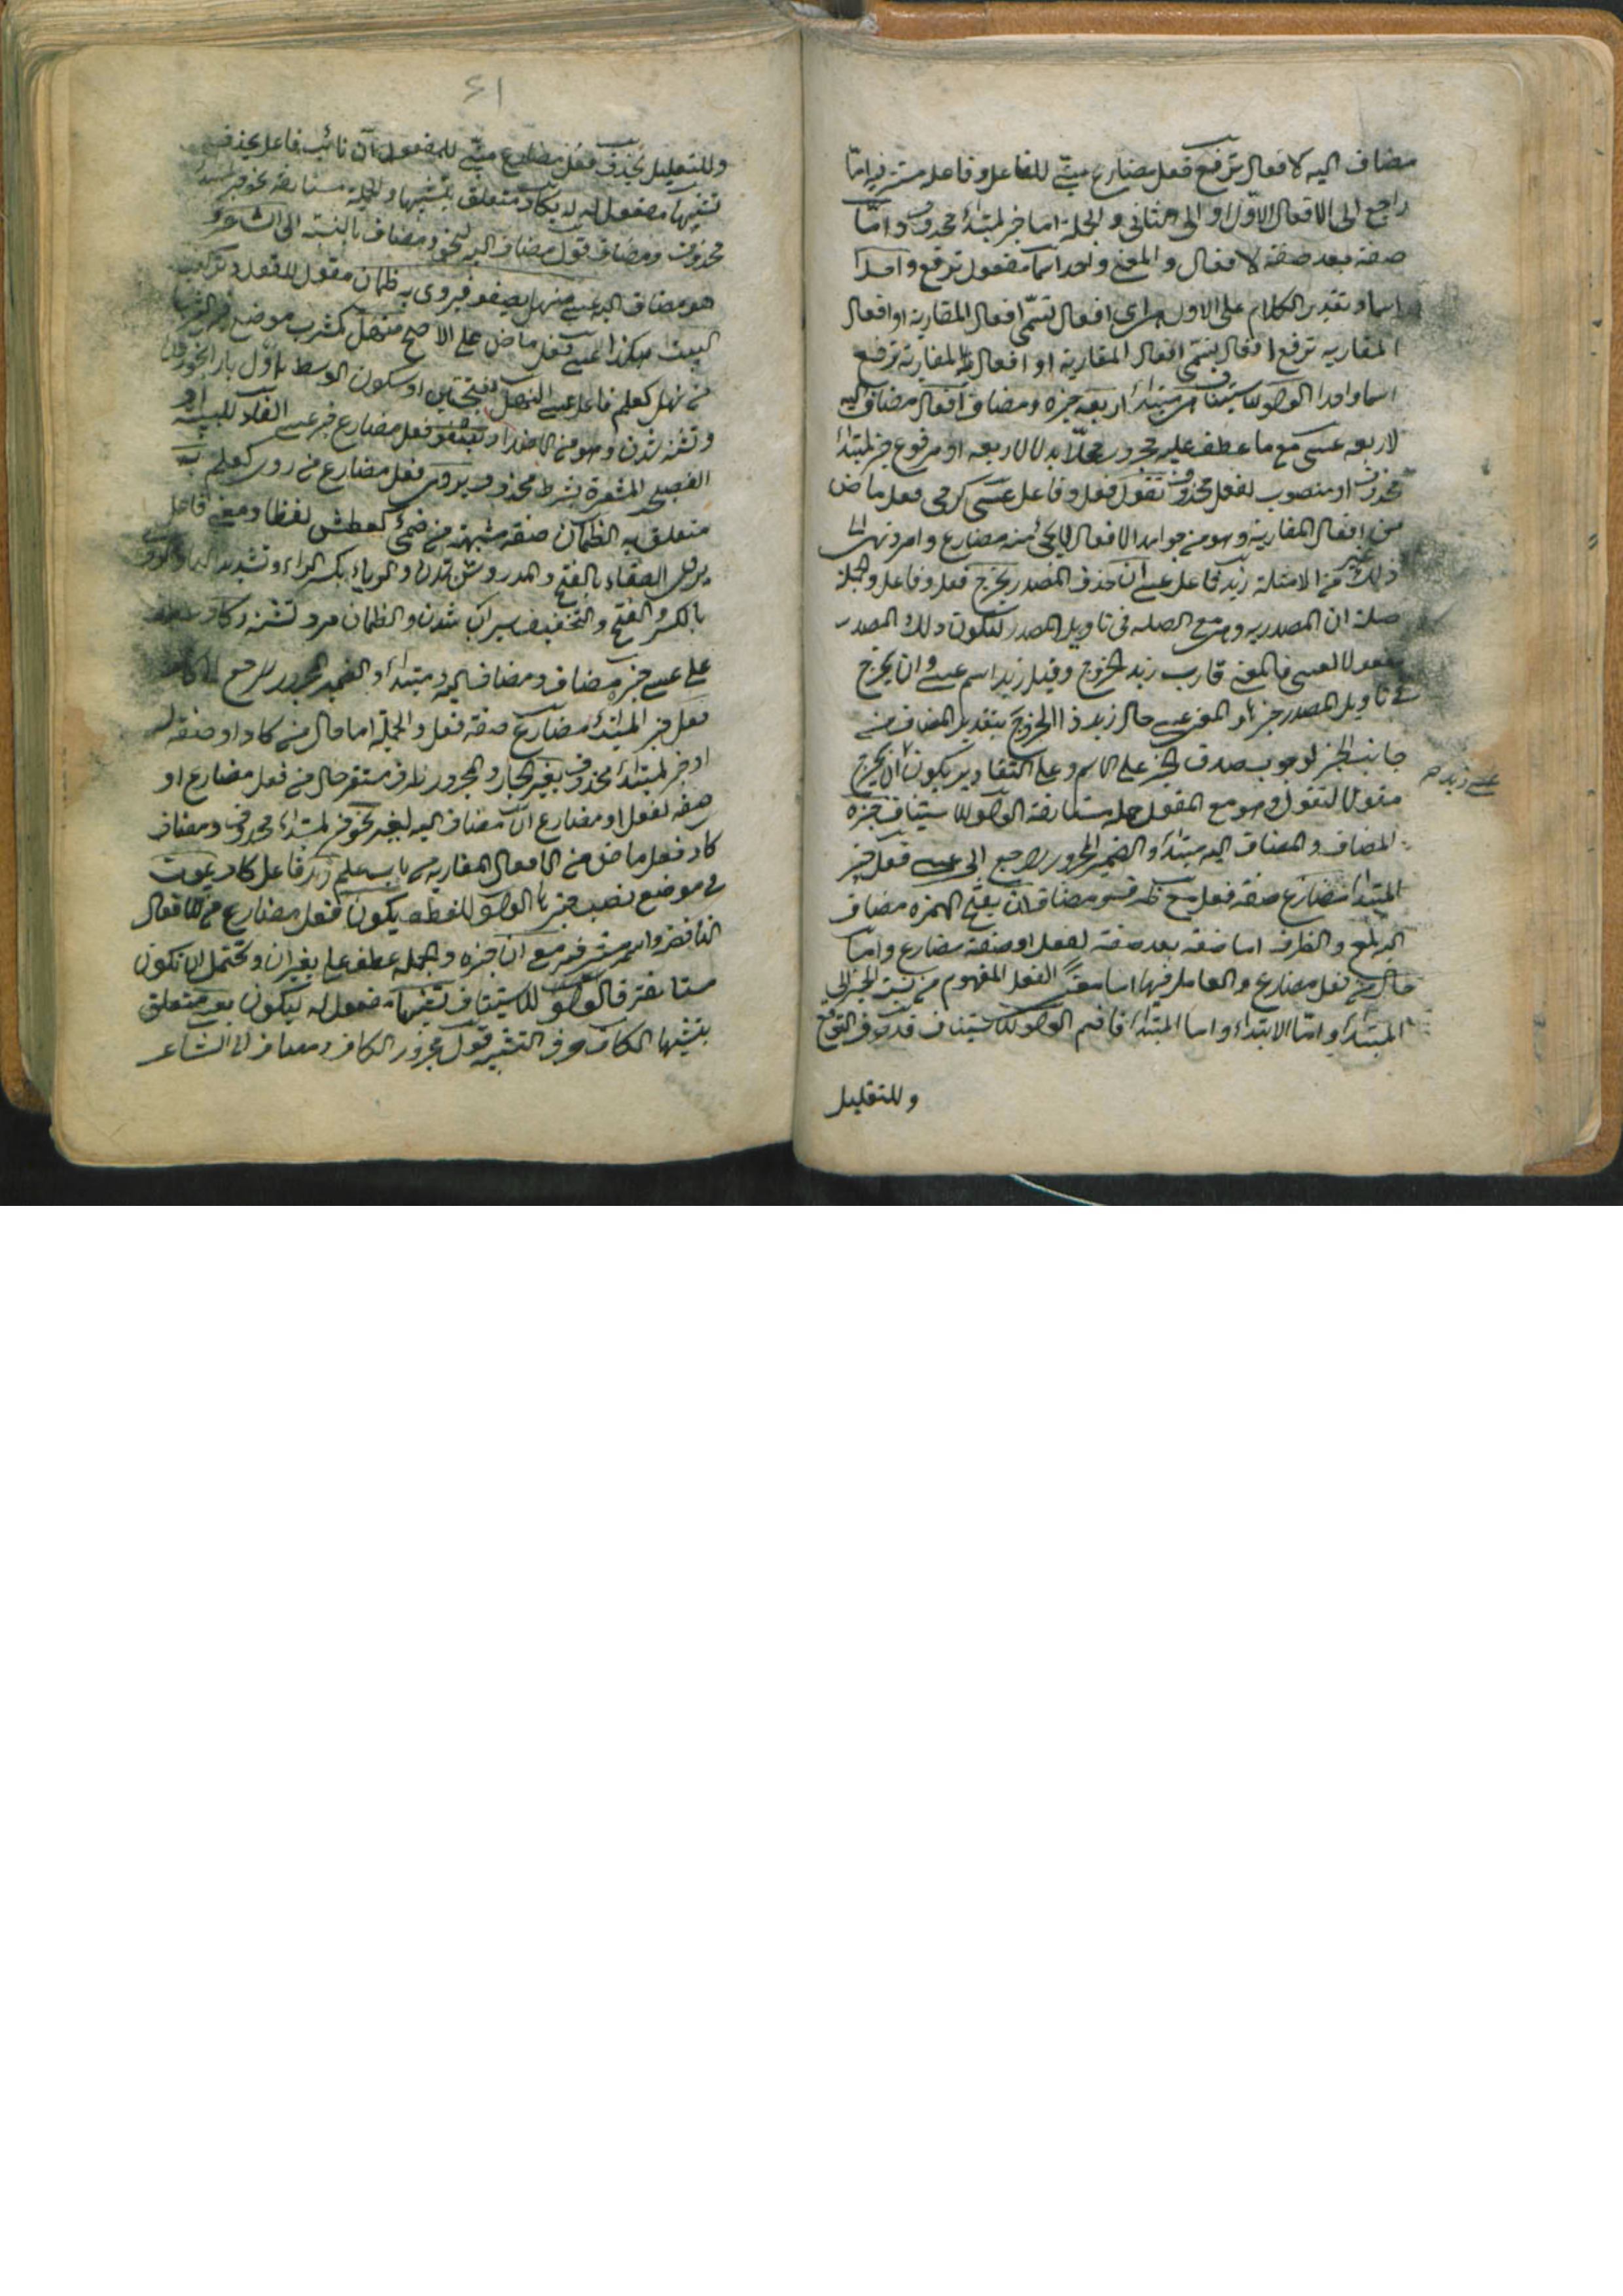 مضاف اليه لافعال ترفع فعل مضارع مبنى للفاعل وفاعله مستتر فيه امّا
راجع الى الافعال الاوّل او الى الثانى والجملة اما خبر لمبتدأ محذوف وامّا
صفة بعد صفة لافعال والمعنى واحد اسما مفعول ترفع واحدا
اسما وتقدير الكلام على الاول هى افعال تسمّى افعال المقاربة او افعال
المقاربه ترفع افعال تسمى افعال المقاربة او افعال المقاربة ترفع
اسما واحدا الواو للاستيناف هى مبتدأ اربعة خبره ومضاف افعال مضاف اليه
لاربعه عسى مع ما عطف عليه مجرور محلا بدلا لاربعه او مرفوع خبر لمبتدأ
محذوف او منصوب لفعل محذوف تقول فعل وفاعل عسى كرمى فعل ماض
من افعال المقاربة وهو من جوامد الافعال لا يجئ منه مضارع وامر ونهى الى
غير ذلك من الامثلة زيد فاعل عسى ان حذف المصدر يخرج فعل وفاعل والجملة
صلة ان المصدريه وهى مع الصله فى تاويل المصدر ليكون ذلك المصدر
مفعولا لعسى فالمعنى قارب زيد الخروج وقيل زيد اسم عسى وان يخرج
فى تاويل المصدر خبر او المعنى عسى حال زيد ذا الخروج بتقدير المضاف من
جانب الخبر لوجوب صدق الخبر على الاسم وعلى التقادير يكون ان يخرج
عسى زيد
مقولا لتقول وهو مع المقول جملة مستانفة الواو للاستيناف خبره
المضاف والمضاف اليه مبتدأ والضمير المجرور راجع الى عسى فعل خبر
المبتدأ مضارع صفة فعل مع ظرف ومضاف ان بفتح الهمزه مضاف
اليه لمع والظرف اما صفة بعد صفة لفعل او صفة مضارع وامّا
حال من فعل مضارع والعامل فيها اما معنى الفعل المفهوم من نسبة الخبر الى
المبتدأ وامّا الابتداء واما المبتدأ فافهم الواو للاستيناف قد حرف التوقع
وللتقليل
٤١
وللتقليل يحذف فعل مضارع مبنى للمفعول ان نائب فاعل يحذف
تشبيها مفعول له ليكاد متعلق بتشبيها والجملة مستانفة نحو خبر مبتدأ
محذوف ومضاف قول مضاف اليه لنحو ومضاف بالنسبة الى الشاعر و
هو مضاف اليه عسى منهل يصفو فيروى به ظمآن مقول للقول وتركيب
البيت هكذا عسى فعل ماض على الاصح منهل كمشرب موضع
من نهل كعلم فاعل عسى النهل بفتحتين او سكون الوسط اوّل بار
وتشنه شدن وهو من الاضداد يصفو فعل مضارع خبر عسى الفاء للسببيه او
الفصيحه المشعرة بشرط محذوف يروى فعل مضارع من روى كعلم به
متعلق به الظمآن صفة مشبهة من ظمئ كعطش لفظا ومعنى فاعل
يروى الصفاء بالفتح والمد روشن شدن والرواء بكسر الراء وتشديد
بالكسر والفتح والتخفيف سيراب شدن والظمآن مرد تشنه وكاد عطف
على عسى خبره مضاف ومضاف اليه ومبتدأ والضمير المجرور راجع الى كاد
فعل خبر المبتدأ مضارع صفة فعل والجملة اما حال من كاد او صفة له
او خبر لمبتدأ محذوف بغير الجار والمجرور ظرف مستقر حال من فعل مضارع او
صفه لفعل او مضارع ان مضاف اليه لغير نحو خبر لمبتدأ محذوف ومضاف
كاد فعل ماض من افعال المقاربة من باب علم زيد فاعل كاد يموت
فى موضع نصب خبر كاد الواو للعطف يكون فعل مضارع من الافعال
الناقصة واسمه مستتر فيه مع ان خبره والجملة عطف على بغير ان ويحتمل ان تكون
مستانفة فالواو للاستيناف تشبيها مفعول له ليكون بعسى متعلق
بتشبيها الكاف حرف التشبيه قول مجرور الكاف ومضاف الى الشاعر